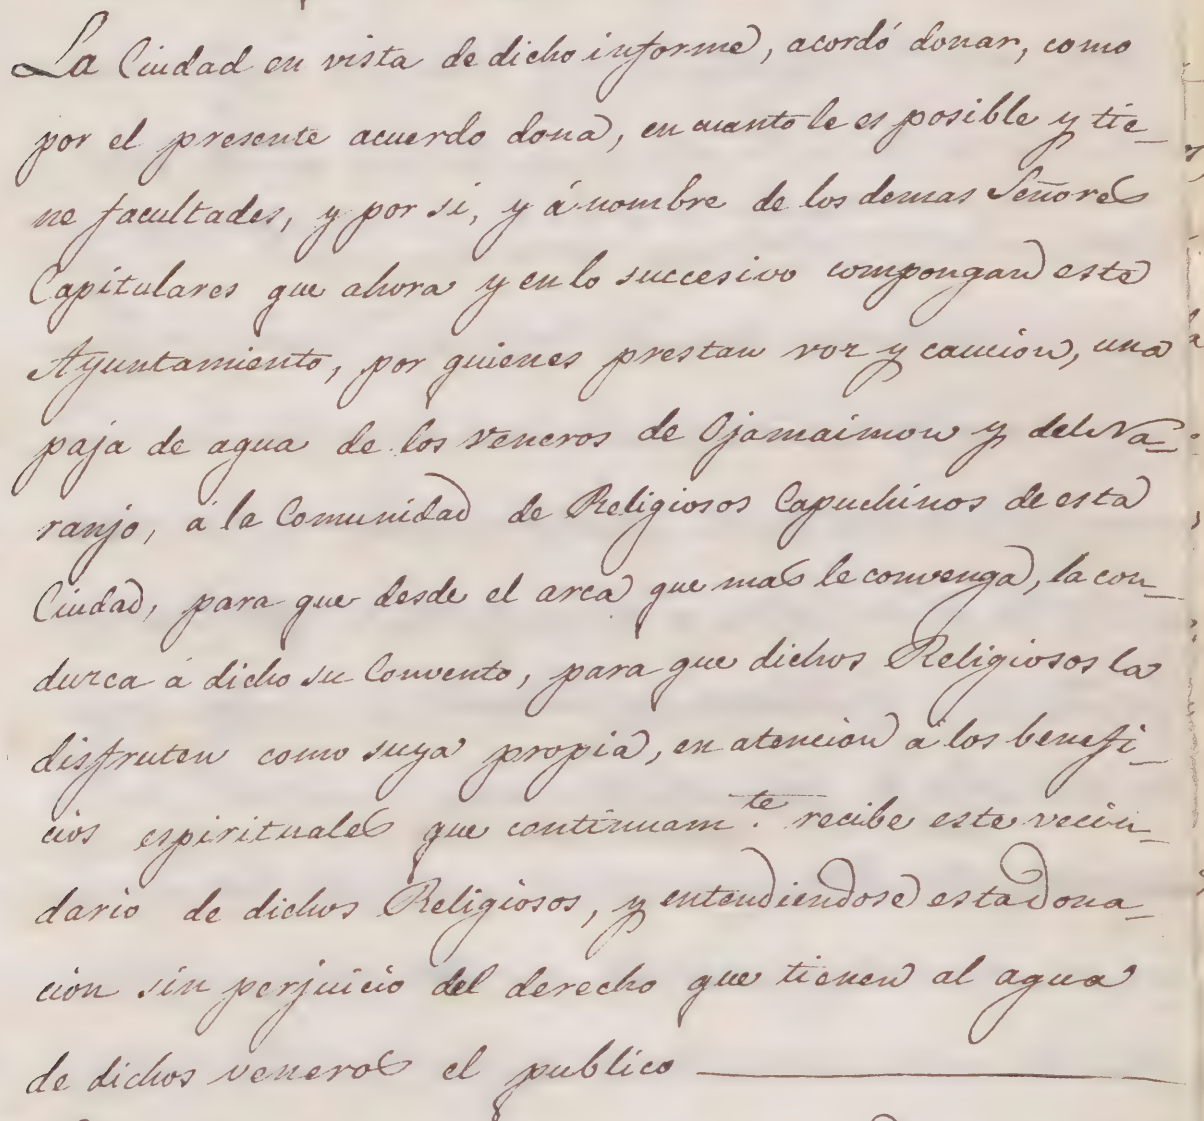 La Ciudad en vista de dicho informe, acordó donar, como
por el presente acuerdo dona, en cuanto le es posible y tie-
ne facultades, y por si, y á nombre de los demas Señores
Capitulares que ahora y en lo succesivo compongan este
Ayuntamiento, por quienes prestan voz y caucion, una
paja de agua de los veneros de Ojamaimon y del Na-
ranjo, á la Comunidad de Religiosos Capuchinos de esta
Ciudad, para que desde el arca que mas le convenga, la con-
duzca á dicho su Convento, para que dichos Religiosos la
disfruten como suya propia, en atencion á los benefi-
cios espirituales que continuam.te recibe este vecin-
dario de dichos Religiosos, y entendiendose esta dona-
cion sin perjuicio del derecho que tienen al agua
de dichos veneros el publico